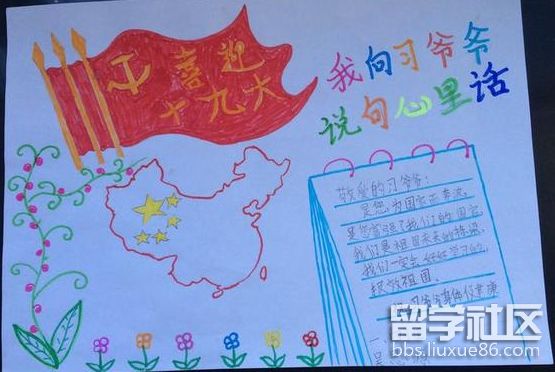 喜迎
十九大
我向习爷爷
说句心里话
敬爱的习爷爷:
是您为国家正奔波,
是您富强了我们的国家,
我们是祖国未来的栋梁,
我们一定会好好学习的,
报效祖国。
习爷爷身体仪健康
留学社区
bbs.liuxue86.com